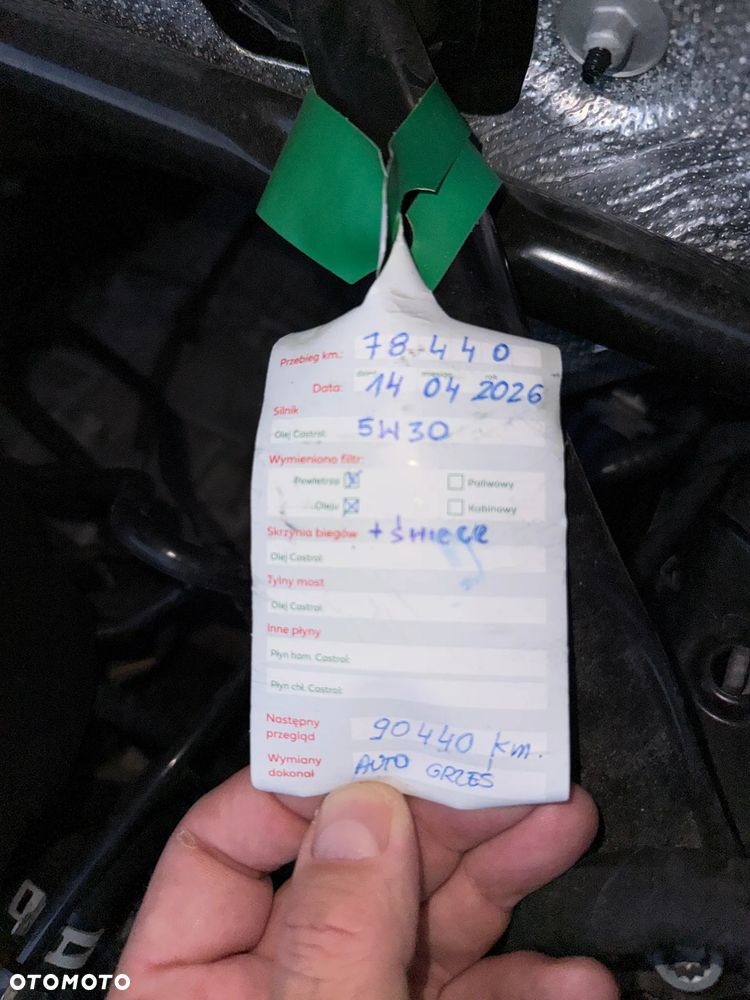 Przebieg km.: 78.440
dzień miesiąc rok
Data: 14 04 2026
Silnik
Olej Castrol: 5W30
Wymieniono filtr:
Powietrza ☒ ☐ Paliwowy
Oleju ☒ ☐ Kabinowy
Skrzynia biegów + świece
Olej Castrol:
Tylny most
Olej Castrol:
Inne płyny
Płyn ham. Castrol:
Płyn chł. Castrol:
Następny
przegląd 90440 km.
Wymiany
dokonał AUTO GRZEŚ
OTOMOTO